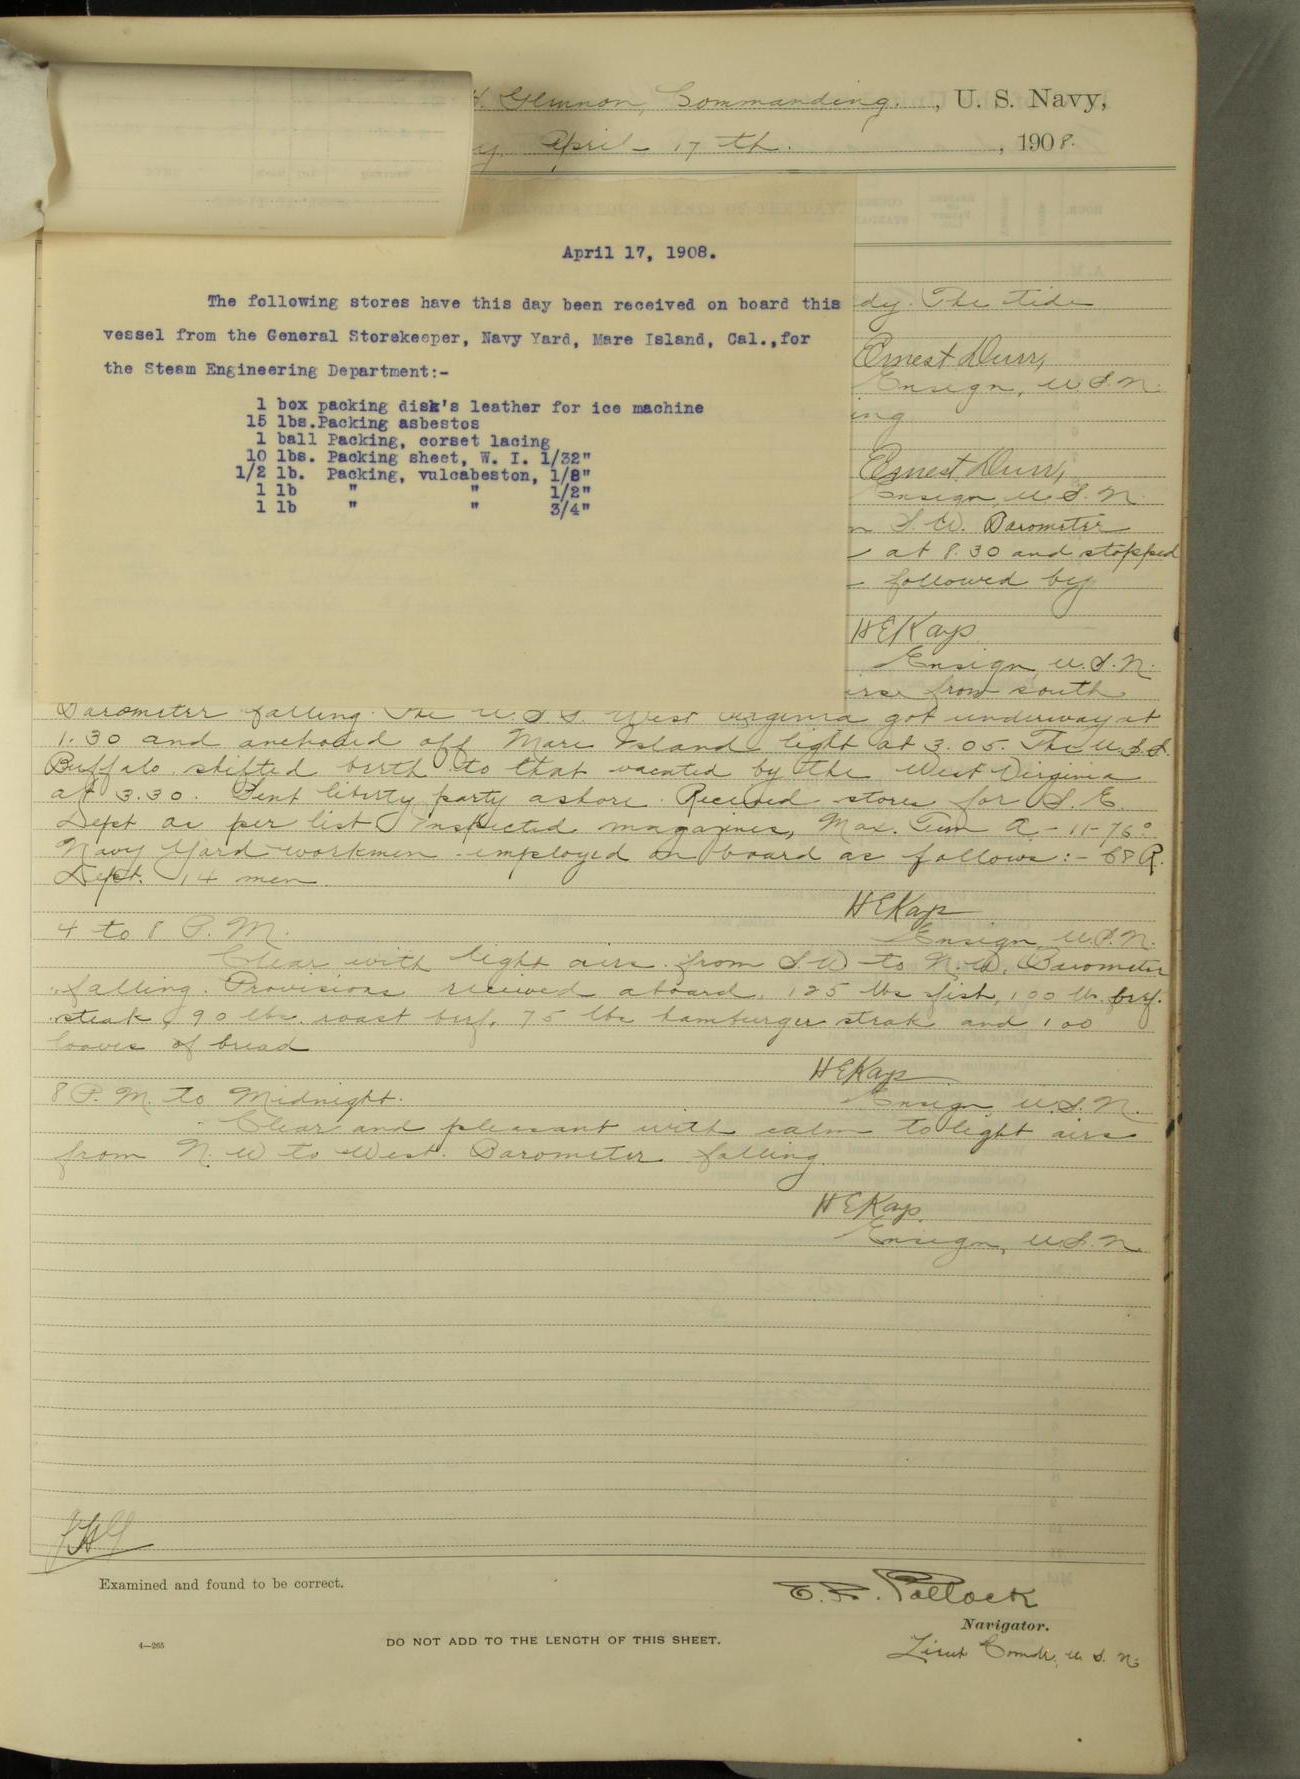 H. Glennon, Commanding. , U. S. Navy,
April 17th. , 1908.
April 17, 1908.
The following stores have this day been received on board this
vessel from the General Storekeeper, Navy Yard, Mare Island, Cal.,for
the Steam Engineering Department:-
1 box packing disk's leather for ice machine
15 lbs.Packing asbestos
1 ball Packing, corset lacing
10 lbs. Packing sheet, W. I. 1/32"
1/2 lb. Packing, vulcabeston, 1/8"
1 lb " " 1/2"
1 lb " " 3/4"
dy. The tide
Ernest Durr,
Ensign, U.S.N.
ing
Ernest Durr,
Ensign U.S.N.
S.W. Barometer
at 8.30 and stopped
followed by
H E Kays
Ensign, U.S.N.
from south
Barometer falling. The U.S.S. West Virginia got underway at
1.30 and anchored off Mare Island light at 3.05. The U.S.S.
Buffalo shifted berth to that vacated by the West Virginia
at 3.30. Sent liberty party ashore. Received stores for S.E.
Dept as per list. Inspected magazines, Max. Tem A-11-76°
Navy Yard workmen employed on board as follows:- C & R.
Dept. 14 men.
H E Kays
4 to 8 P.M.
Ensign, U.S.N.
Clear with light airs from S.W to N.W. Barometer
falling. Provisions received aboard, 125 lbs fish, 100 lbs. beef
steak, 90 lbs. roast beef, 75 lbs hamburger steak and 100
loaves of bread
H E Kays
8 P.M. to Midnight.
Ensign U.S.N.
Clear and pleasant with calm to light airs
from N.W to West. Barometer falling.
H E Kays.
Ensign, U.S.N.
JHG
Examined and found to be correct.
E. R. Pollock
Navigator.
Lieut Comdr, U.S.N.
4—265
DO NOT ADD TO THE LENGTH OF THIS SHEET.